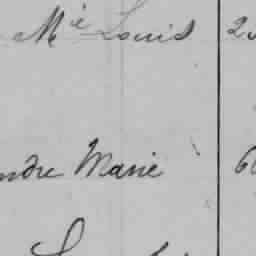 Mie Louis 2
ndre Marie 6